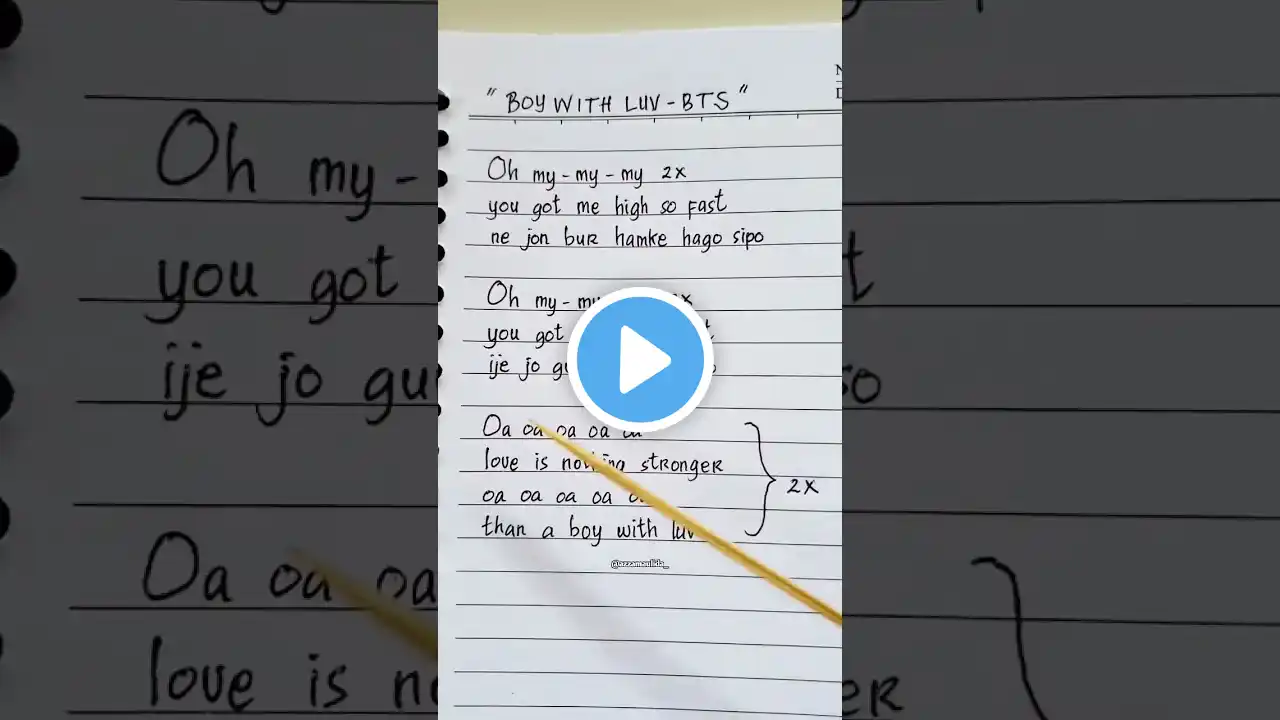 " BOY WITH LUV - BTS "
Oh my - my - my 2x
you got me high so fast
ne jon bur hamke hago sipo
Oh my - my x
you got
ije jo gu
Oa oa oa oa oa
love is nothing stronger
oa oa oa oa
than a boy with luv
2x
@azzamaulida_